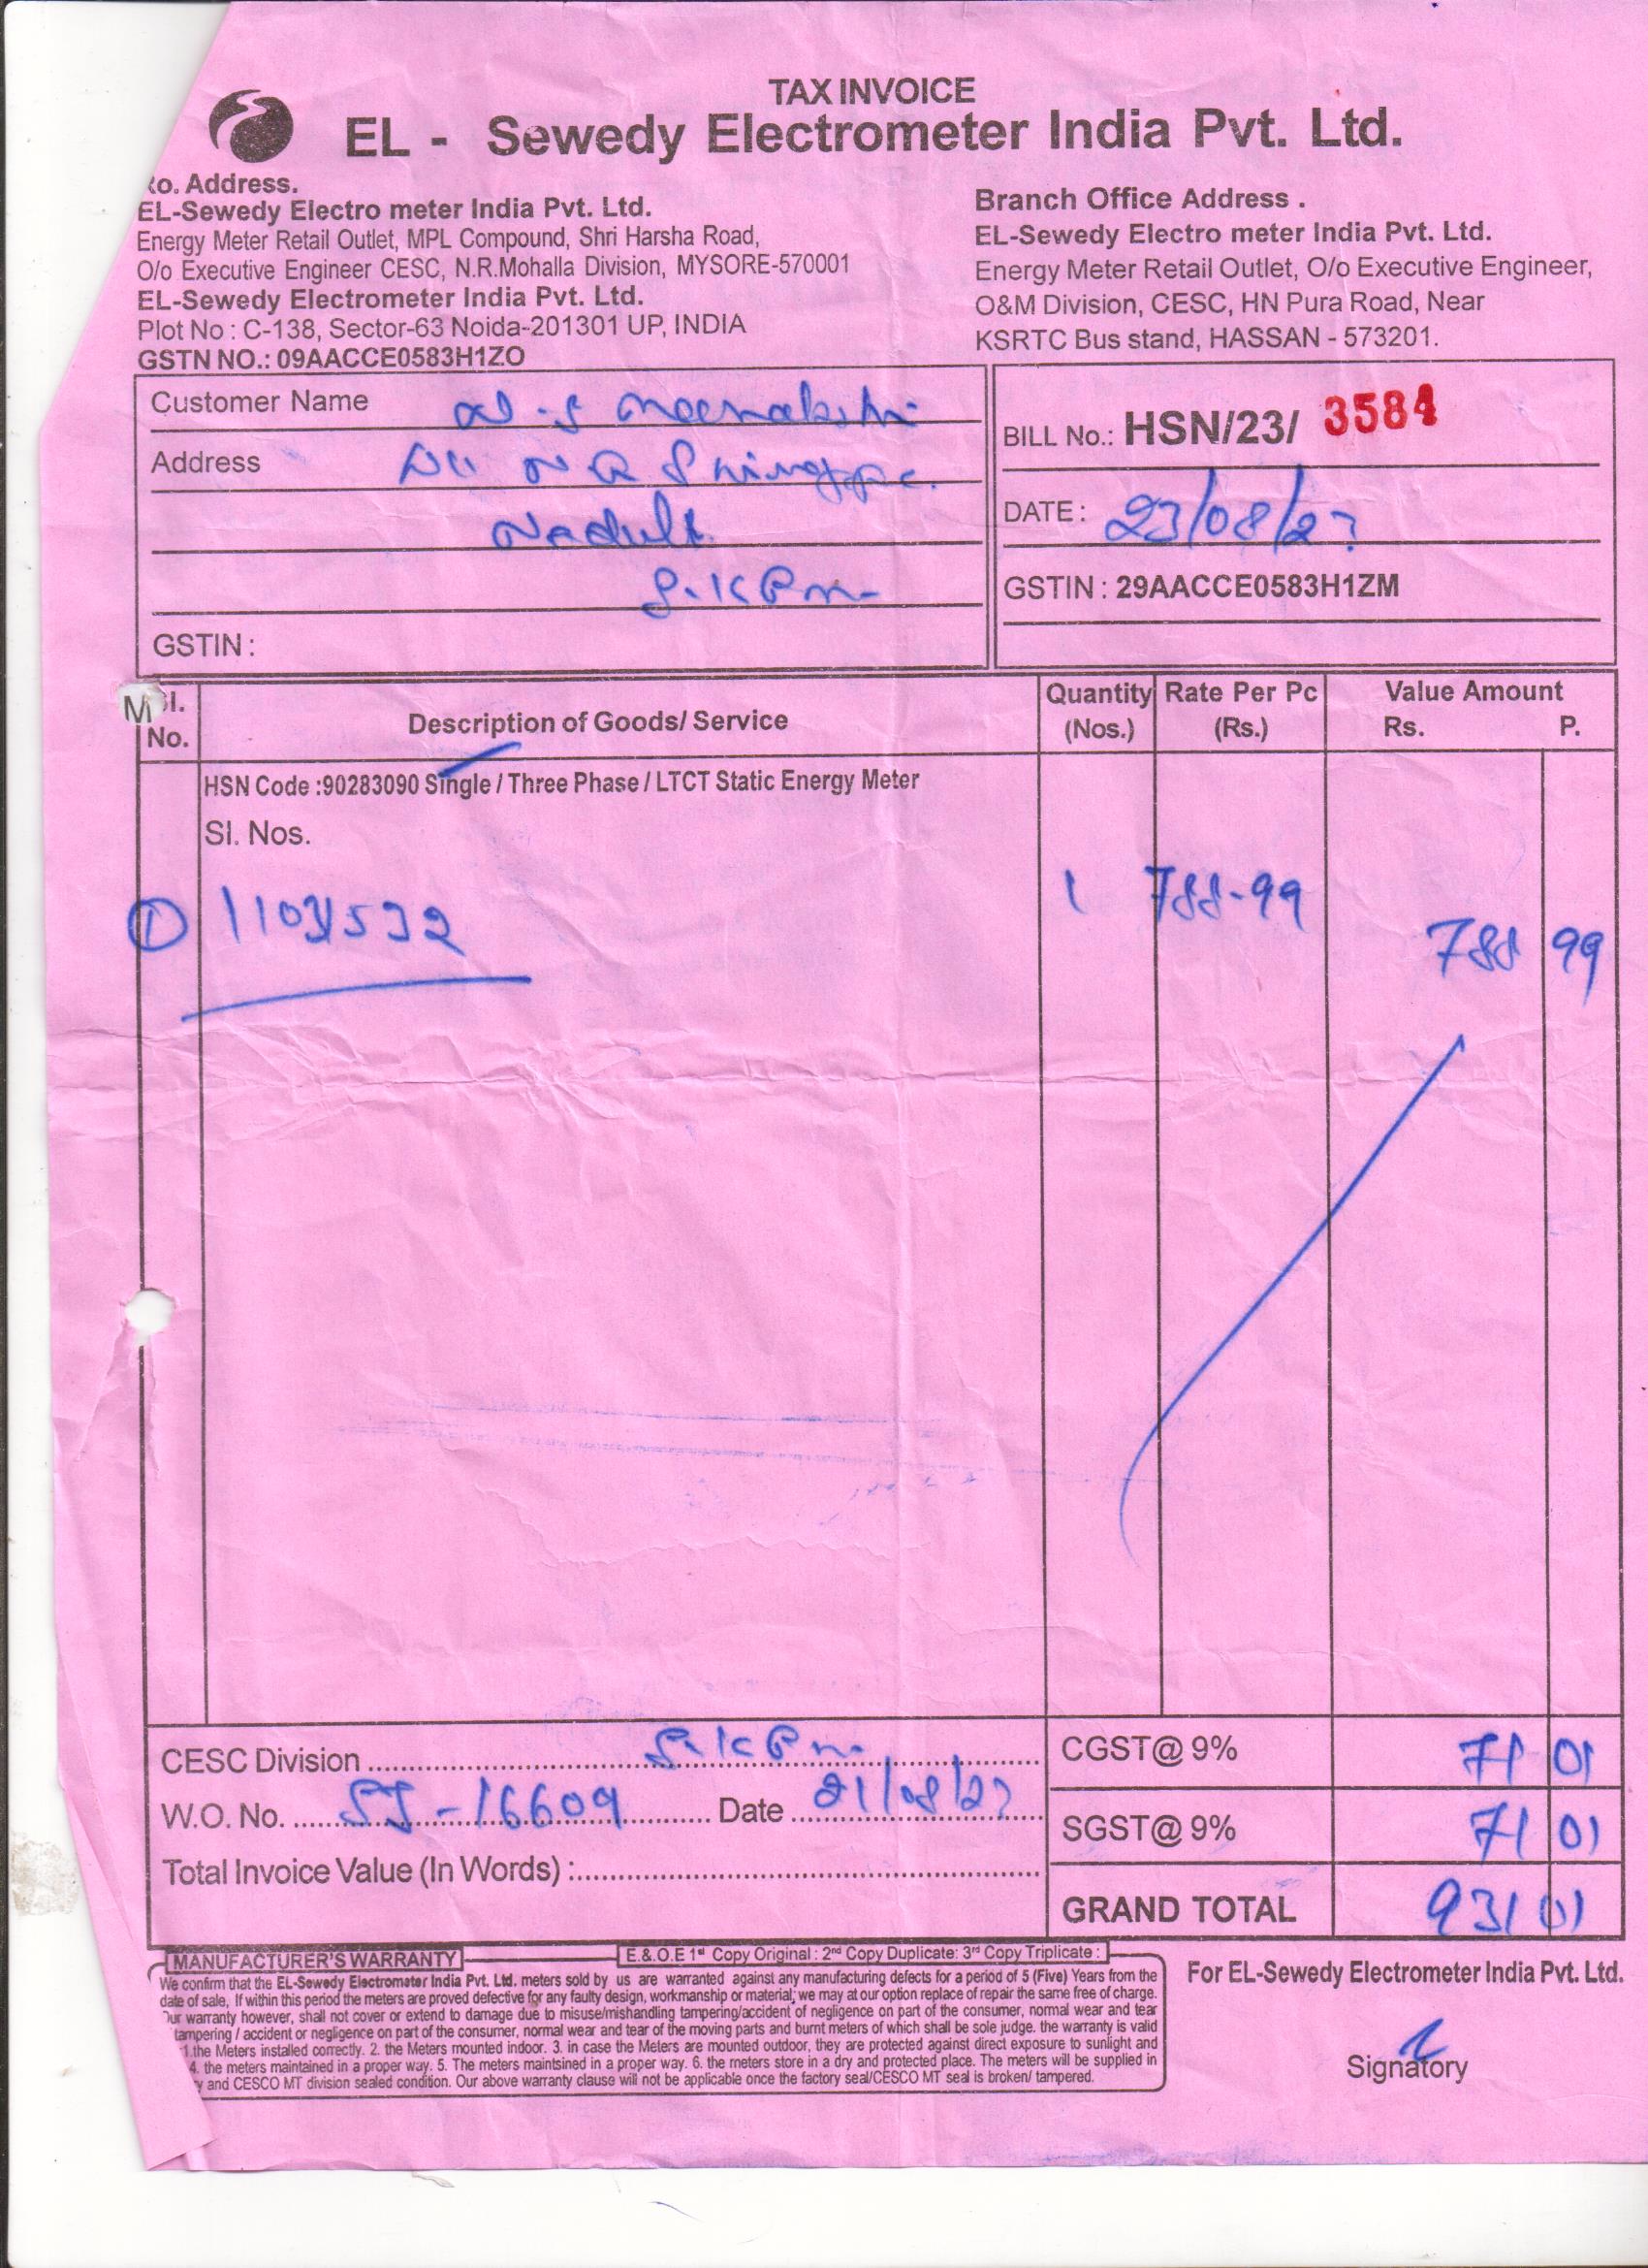 TAX INVOICE
EL - Sewedy Electrometer India Pvt. Ltd.
o. Address.
EL-Sewedy Electro meter India Pvt. Ltd.
Energy Meter Retail Outlet, MPL Compound, Shri Harsha Road,
O/o Executive Engineer CESC, N.R.Mohalla Division, MYSORE-570001
EL-Sewedy Electrometer India Pvt. Ltd.
Plot No : C-138, Sector-63 Noida-201301 UP, INDIA
GSTN NO.: 09AACCE0583H1ZO
Branch Office Address .
EL-Sewedy Electro meter India Pvt. Ltd.
Energy Meter Retail Outlet, O/o Executive Engineer,
O&M Division, CESC, HN Pura Road, Near
KSRTC Bus stand, HASSAN - 573201.
Customer Name
Address
S.KPm
GSTIN :
BILL No.: HSN/23/ 3584
DATE : 23/08/23
GSTIN : 29AACCE0583H1ZM
Sl. No. Description of Goods/ Service Quantity (Nos.) Rate Per Pc (Rs.) Value Amount Rs. P.
HSN Code :90283090 Single / Three Phase / LTCT Static Energy Meter
Sl. Nos.
1 788-99
788 99
CESC Division S.KPm CGST@ 9% 71 01
W.O. No. SJ-16609 Date 21/08/23 SGST@ 9% 71 01
Total Invoice Value (In Words) :
GRAND TOTAL 931 01
MANUFACTURER'S WARRANTY E.&.O.E 1st Copy Original : 2nd Copy Duplicate: 3rd Copy Triplicate :
We confirm that the EL-Sewedy Electrometer India Pvt. Ltd. meters sold by us are warranted against any manufacturing defects for a period of 5 (Five) Years from the
date of sale, If within this period the meters are proved defective for any faulty design, workmanship or material; we may at our option replace of repair the same free of charge.
Our warranty however, shall not cover or extend to damage due to misuse/mishandling tampering/accident of negligence on part of the consumer, normal wear and tear
tampering / accident or negligence on part of the consumer, normal wear and tear of the moving parts and burnt meters of which shall be sole judge. the warranty is valid
1.the Meters installed correctly. 2. the Meters mounted indoor. 3. in case the Meters are mounted outdoor, they are protected against direct exposure to sunlight and
4. the meters maintained in a proper way. 5. The meters maintsined in a proper way. 6. the meters store in a dry and protected place. The meters will be supplied in
y and CESCO MT division sealed condition. Our above warranty clause will not be applicable once the factory seal/CESCO MT seal is broken/ tampered.
For EL-Sewedy Electrometer India Pvt. Ltd.
Signatory